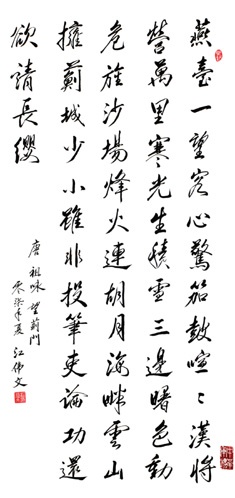 燕臺一望客心驚笳鼓喧〻漢將
營萬里寒光生積雪三邊曙色動
危旌沙場烽火連胡月海畔雲山
擁薊城少小雖非投筆吏論功還
欲請長纓
唐 祖咏 望薊門
夏 江